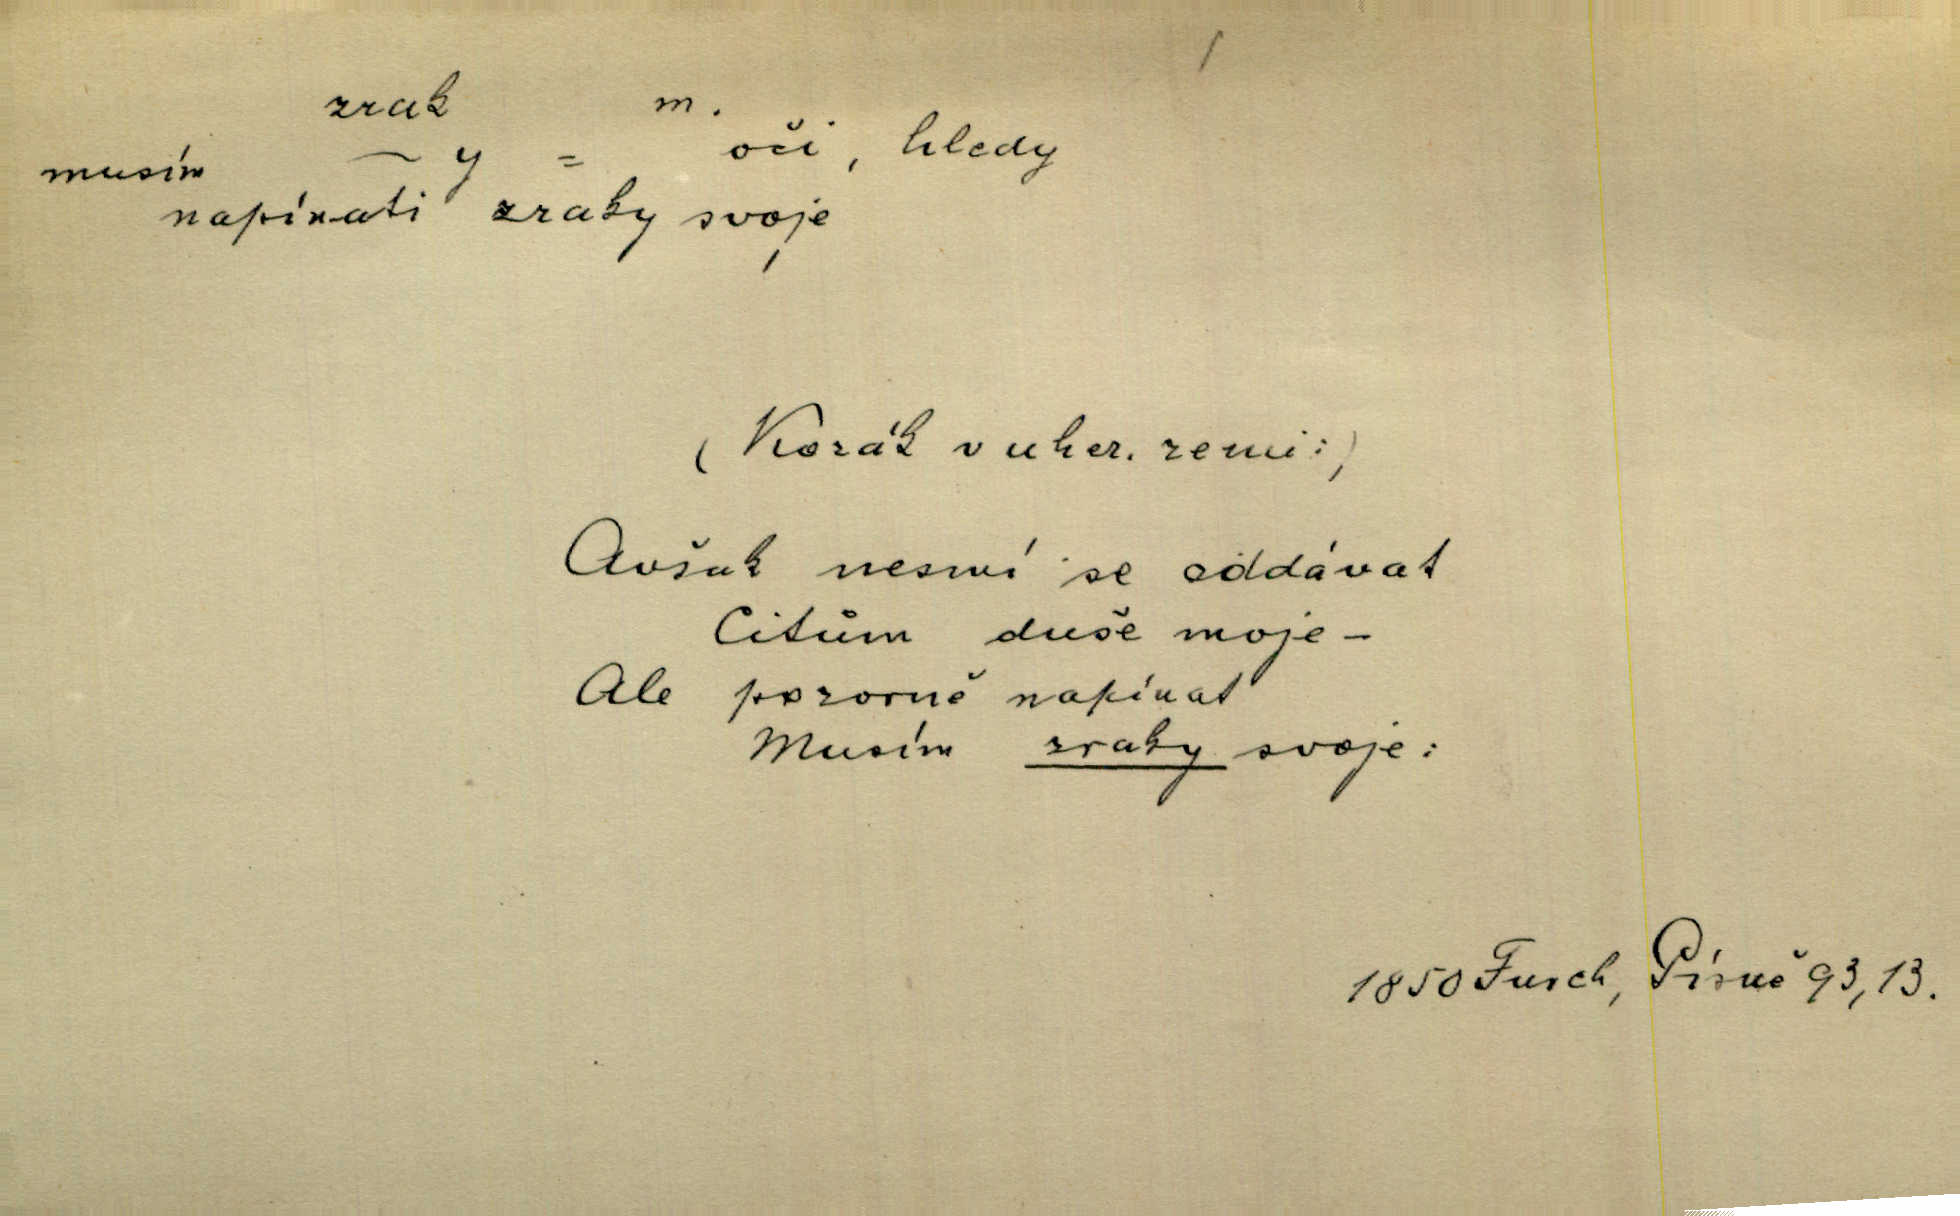 zrak m.
musím ~y = oči, hledy
napínati zraky svoje
(Kozák v uher. zemi:)
Avšak nesmí se oddávat
Citům duše moje –
Ale pozorně napínat
Musím zraky svoje:
1850 Fursch, Písně 93, 13.